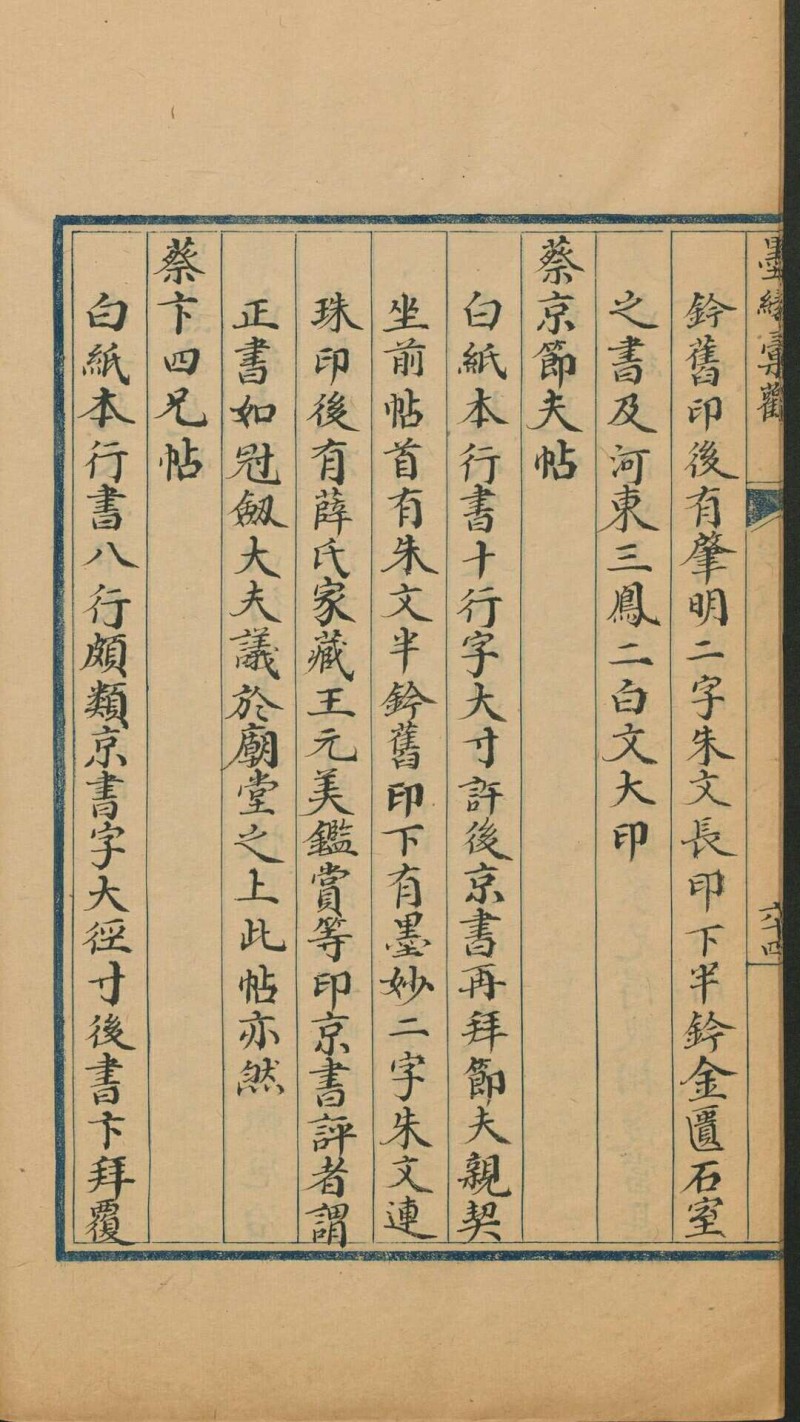 墨緣彙觀
六十四
鈐舊印後有肇明二字朱文長印下半鈐金匱石室
之書及河東三鳳二白文大印
蔡京節夫帖
白紙本行書十行字大寸許後京書再拜節夫親契
坐前帖首有朱文半鈐舊印下有墨妙二字朱文連
珠印後有薛氏家藏王元美鑑賞等印京書評者謂
正書如冠劔大夫議於廟堂之上此帖亦然
蔡卞四兄帖
白紙本行書八行頗類京書字大徑寸後書卞拜覆